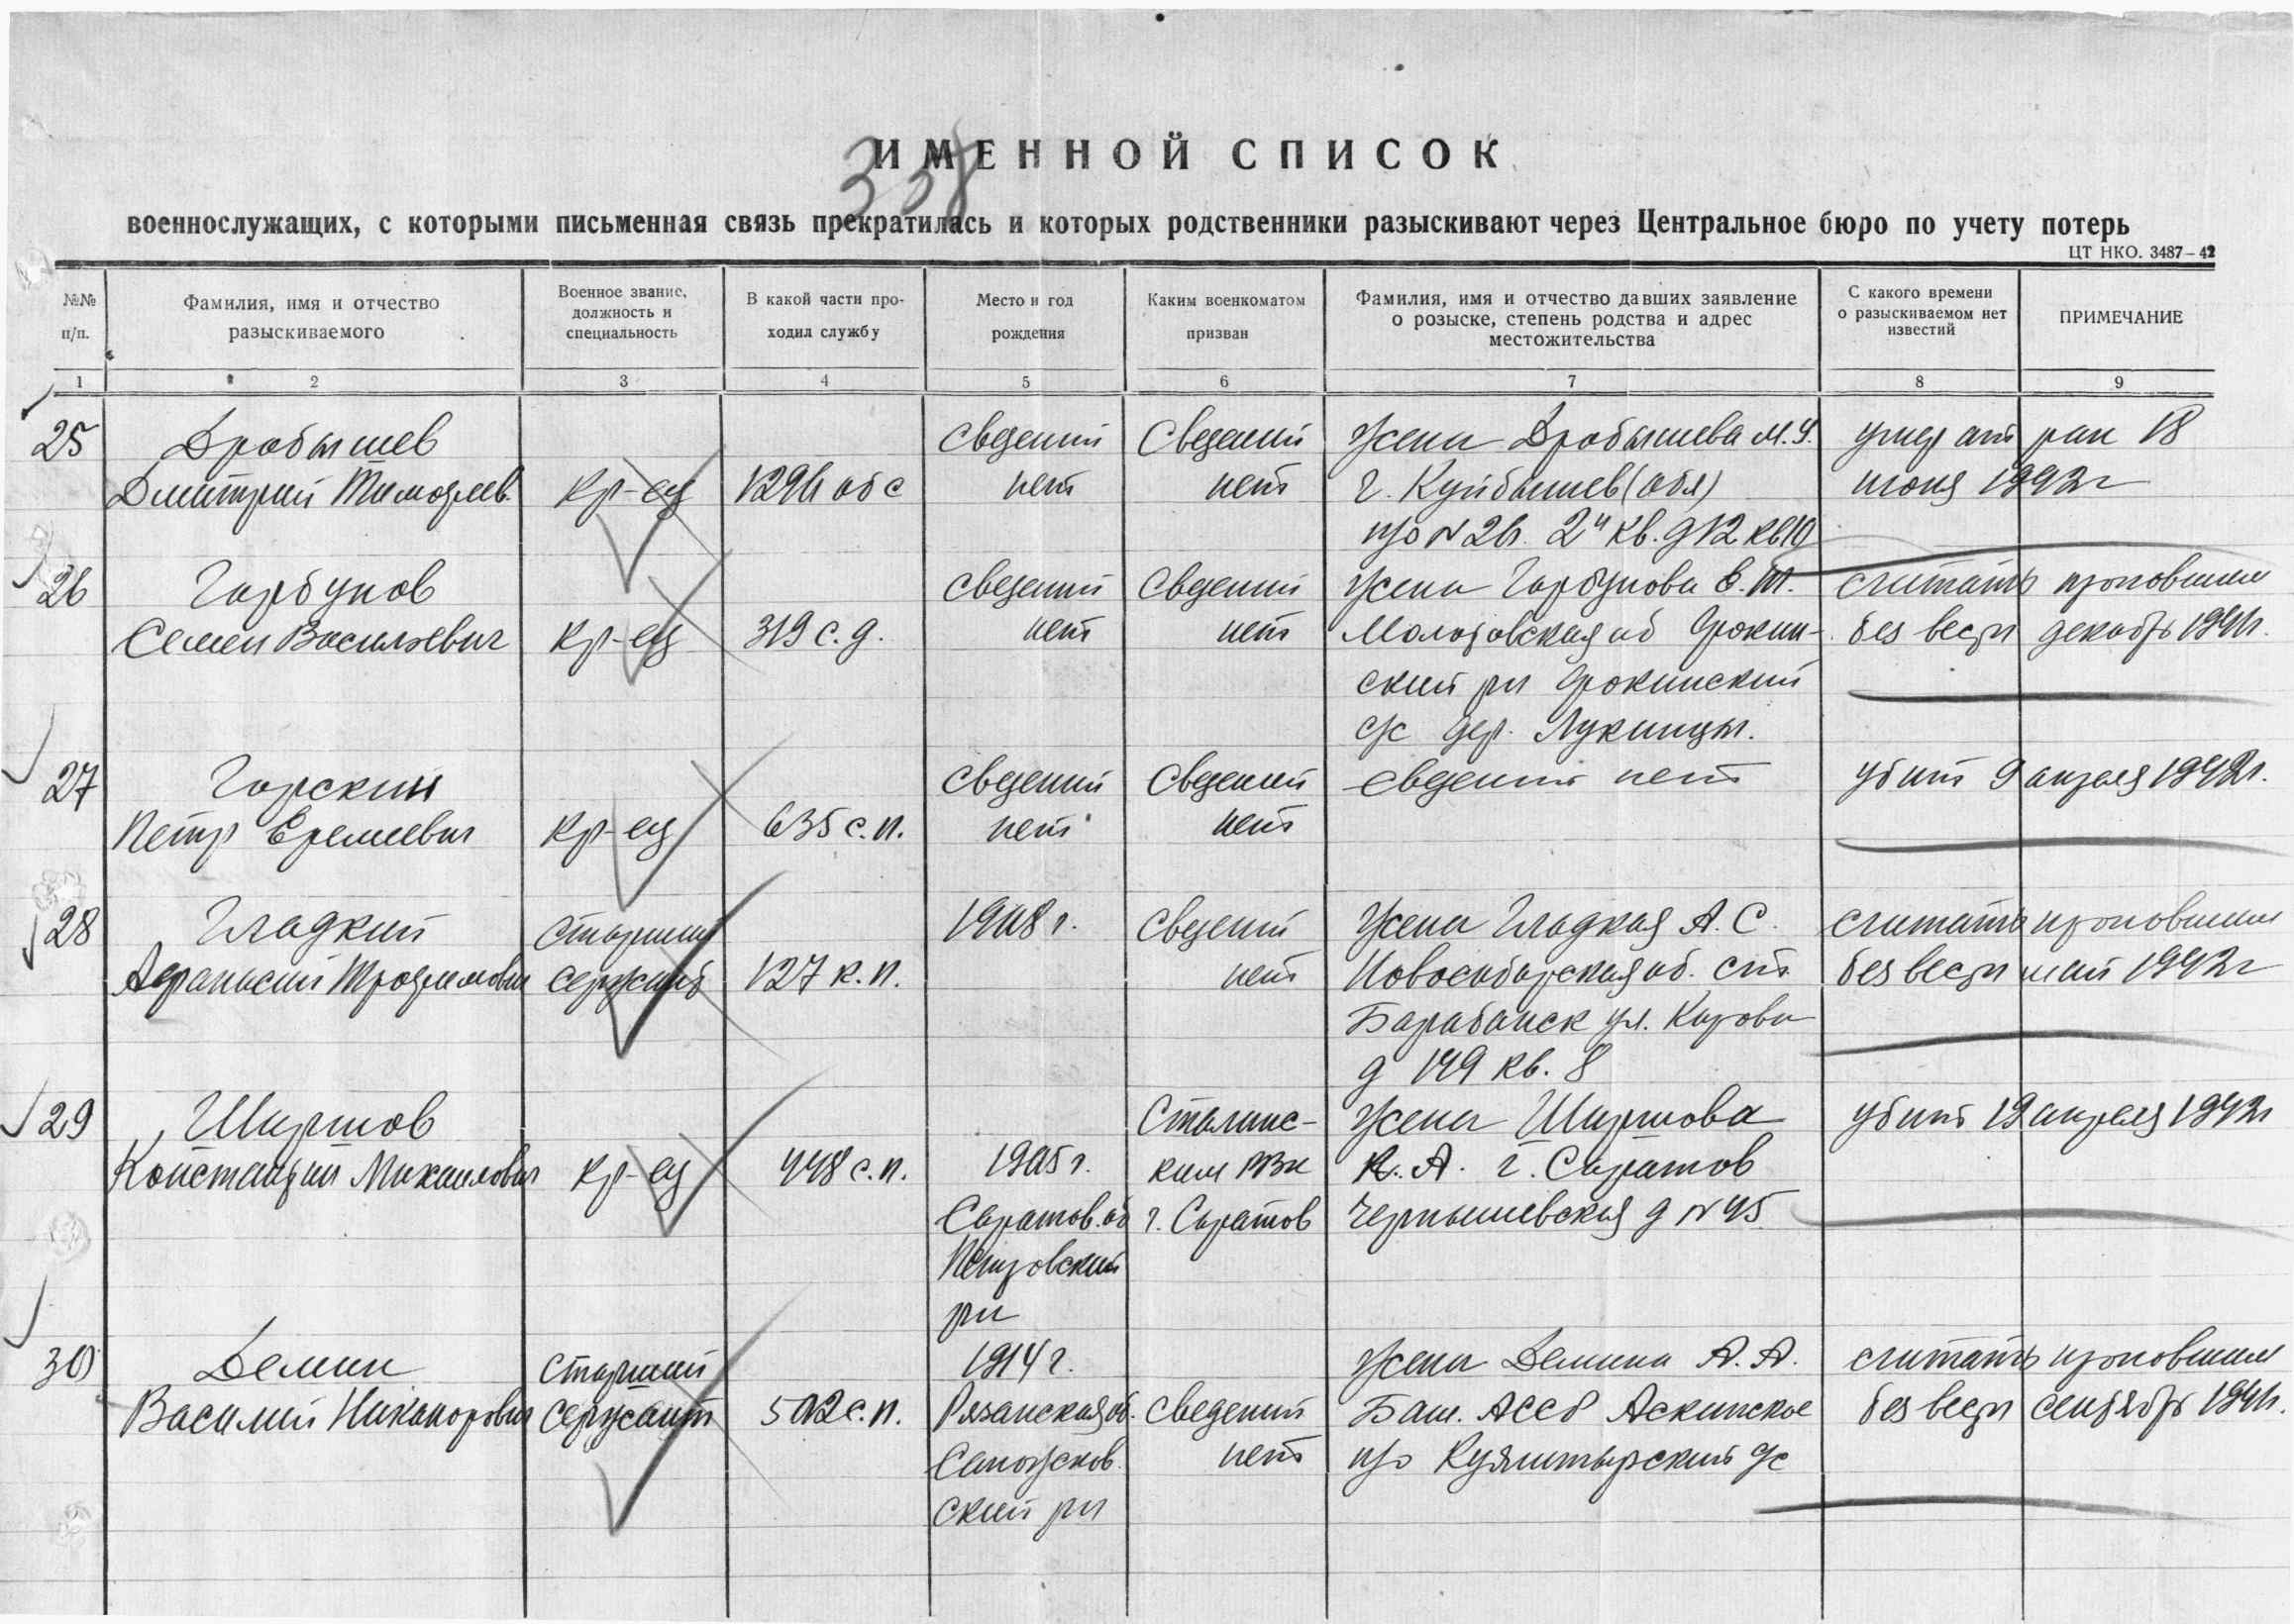 ИМЕННОЙ СПИСОК
338
военнослужащих, с которыми письменная связь прекратилась и которых родственники разыскивают через Центральное бюро по учету потерь
ЦТ НКО. 3487–42
№№ п/п.
Фамилия, имя и отчество
разыскиваемого
Военное звание,
должность и
специальность
В какой части про-
ходил службу
Место и год
рождения
Каким военкоматом
призван
Фамилия, имя и отчество давших заявление
о розыске, степень родства и адрес
местожительства
С какого времени
о разыскиваемом нет
известий
ПРИМЕЧАНИЕ
1 2 3 4 5 6 7 8 9
25
Дробышев
Дмитрий Тимофеев.
кр-ец
сведений
нет
Сведений
нет
Жена Дробышева М.
г. Куйбышев (обл)
п/о N 2 кв. д 12 кв 10
умер от ран 18
июня 1942г
26
Горбунов
Семен Васильевич
кр-ец
319 с.д.
сведений
нет
Сведений
нет
Жена Горбунова Е. Т.
Молотовская об
ский рн
с/с дер. Лукинцы.
считать проповшим
без вести декабрь 1941г.
27
Горскин
Петр Еремеевич
кр-ец
635 с.п.
Сведений
нет
Сведений
нет
сведений нет
убит 9 апреля 1942г.
28
Гладкий
Афанасий Трофимович
Старший
сержант
127 к.п.
1908 г.
сведений
нет
Жена Гладкая А. С.
Новосибирская об. ст.
Барабинск ул. Кирова
д 149 кв. 8
считать проповшим
без вести май 1942г
29
Ширшов
Константин Михаилович
кр-ец
448 с.п.
1905 г.
Саратов. об
Петровский
рн
Сталинс-
ким РВК
г. Саратов
Жена Ширшова
К. А. г. Саратов
Чернышевская д N 45
убит 19 апреля 1942г
30
Демин
Василий Никанорович
Старший
Сержант
502 с.п.
1914 г.
Рязанская об.
Сапожков.
ский рн
Сведений
нет
Жена Демина А. А.
Баш. АССР Аскинское
п/о с/с
считать проповшим
без вести сентябрь 1941г.